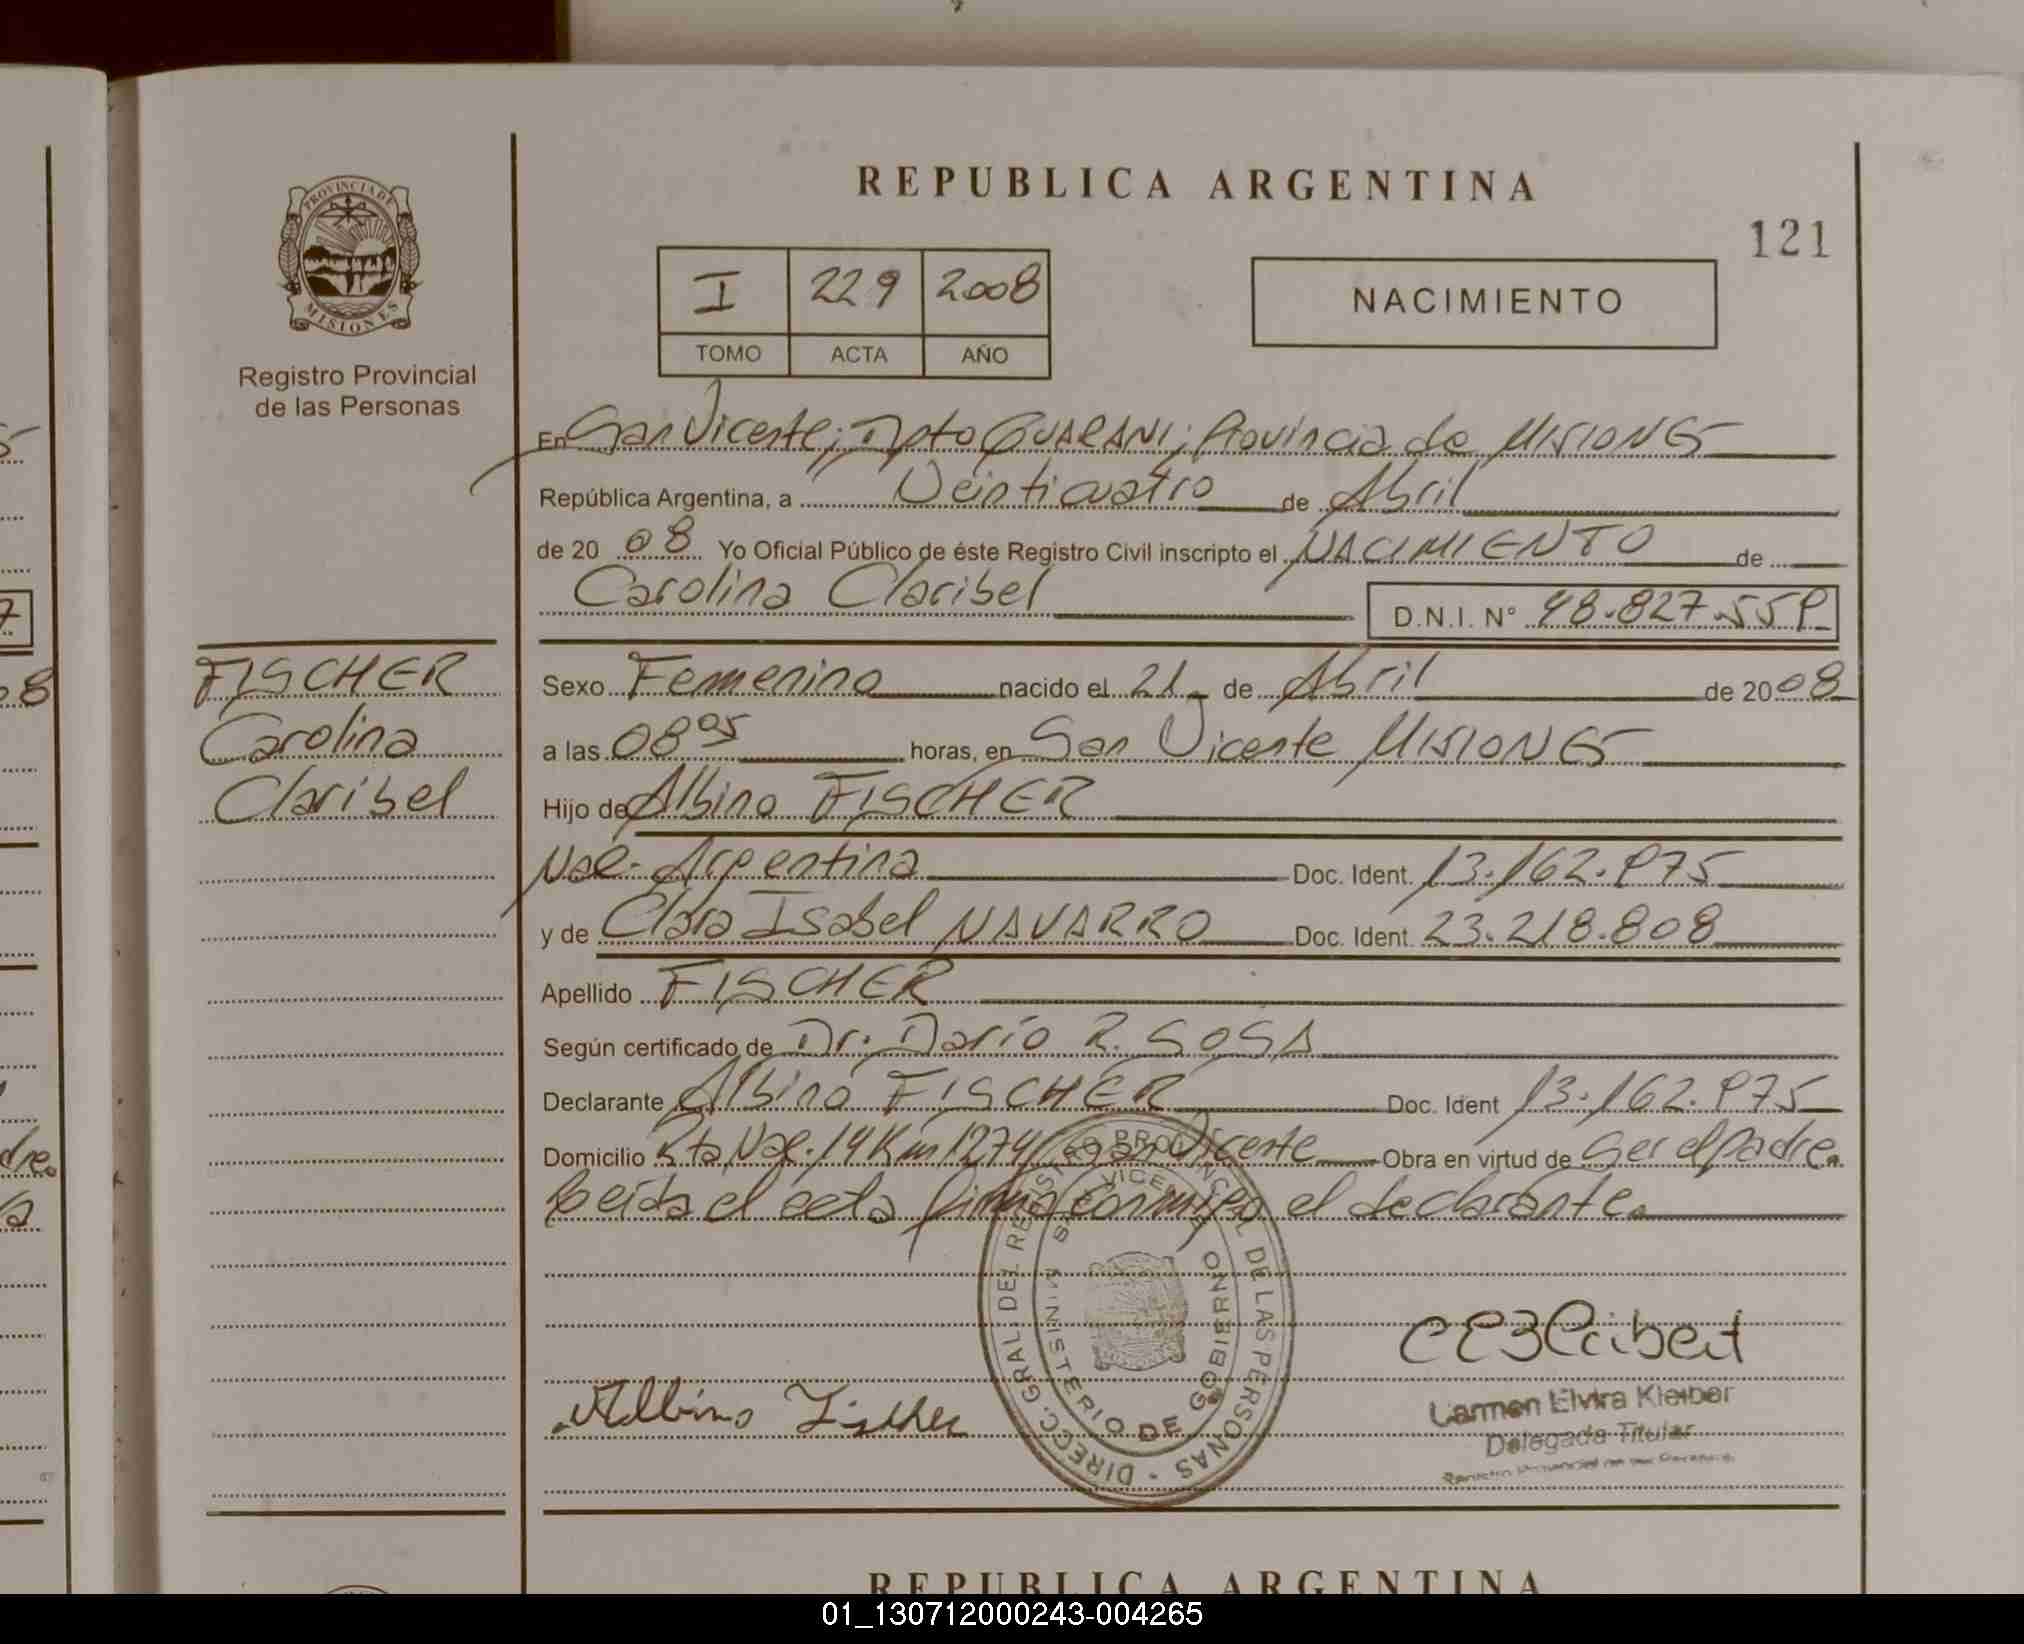 REPUBLICA ARGENTINA
121
I 229 2008
TOMO ACTA AÑO
NACIMIENTO
PROVINCIA DE
MISIONES
Registro Provincial
de las Personas
En San Vicente; Dpto GUARANI; Provincia de MISIONES
República Argentina, a Veinticuatro de Abril
de 20 08 Yo Oficial Público de éste Registro Civil inscripto el NACIMIENTO de
Carolina Claribel
D.N.I. N° 48.827.559
FISCHER
Carolina
Claribel
Sexo Femenino nacido el 21 de Abril de 2008
a las 08 05 horas, en San Vicente MISIONES
Hijo de Albino FISCHER
Nac. Argentina Doc. Ident. 13.162.975
y de Clara Isabel NAVARRO Doc. Ident. 23.218.808
Apellido FISCHER
Según certificado de Dr. Darío R. SOSA
Declarante Albino FISCHER Doc. Ident 13.162.975
Domicilio Rta Nac. 14 Km 1274 San Vicente Obra en virtud de Ser el padre.
Leída el acta firma conmigo el declarante.
DIRECC. GRAL. DEL REGISTRO PROVINCIAL DE LAS PERSONAS
SAN VICENTE
MINISTERIO DE GOBIERNO
MISIONES
Albino Fischer
Carmen Elvira Kleiber
Delegada Titular
REPUBLICA ARGENTINA
01_130712000243-004265